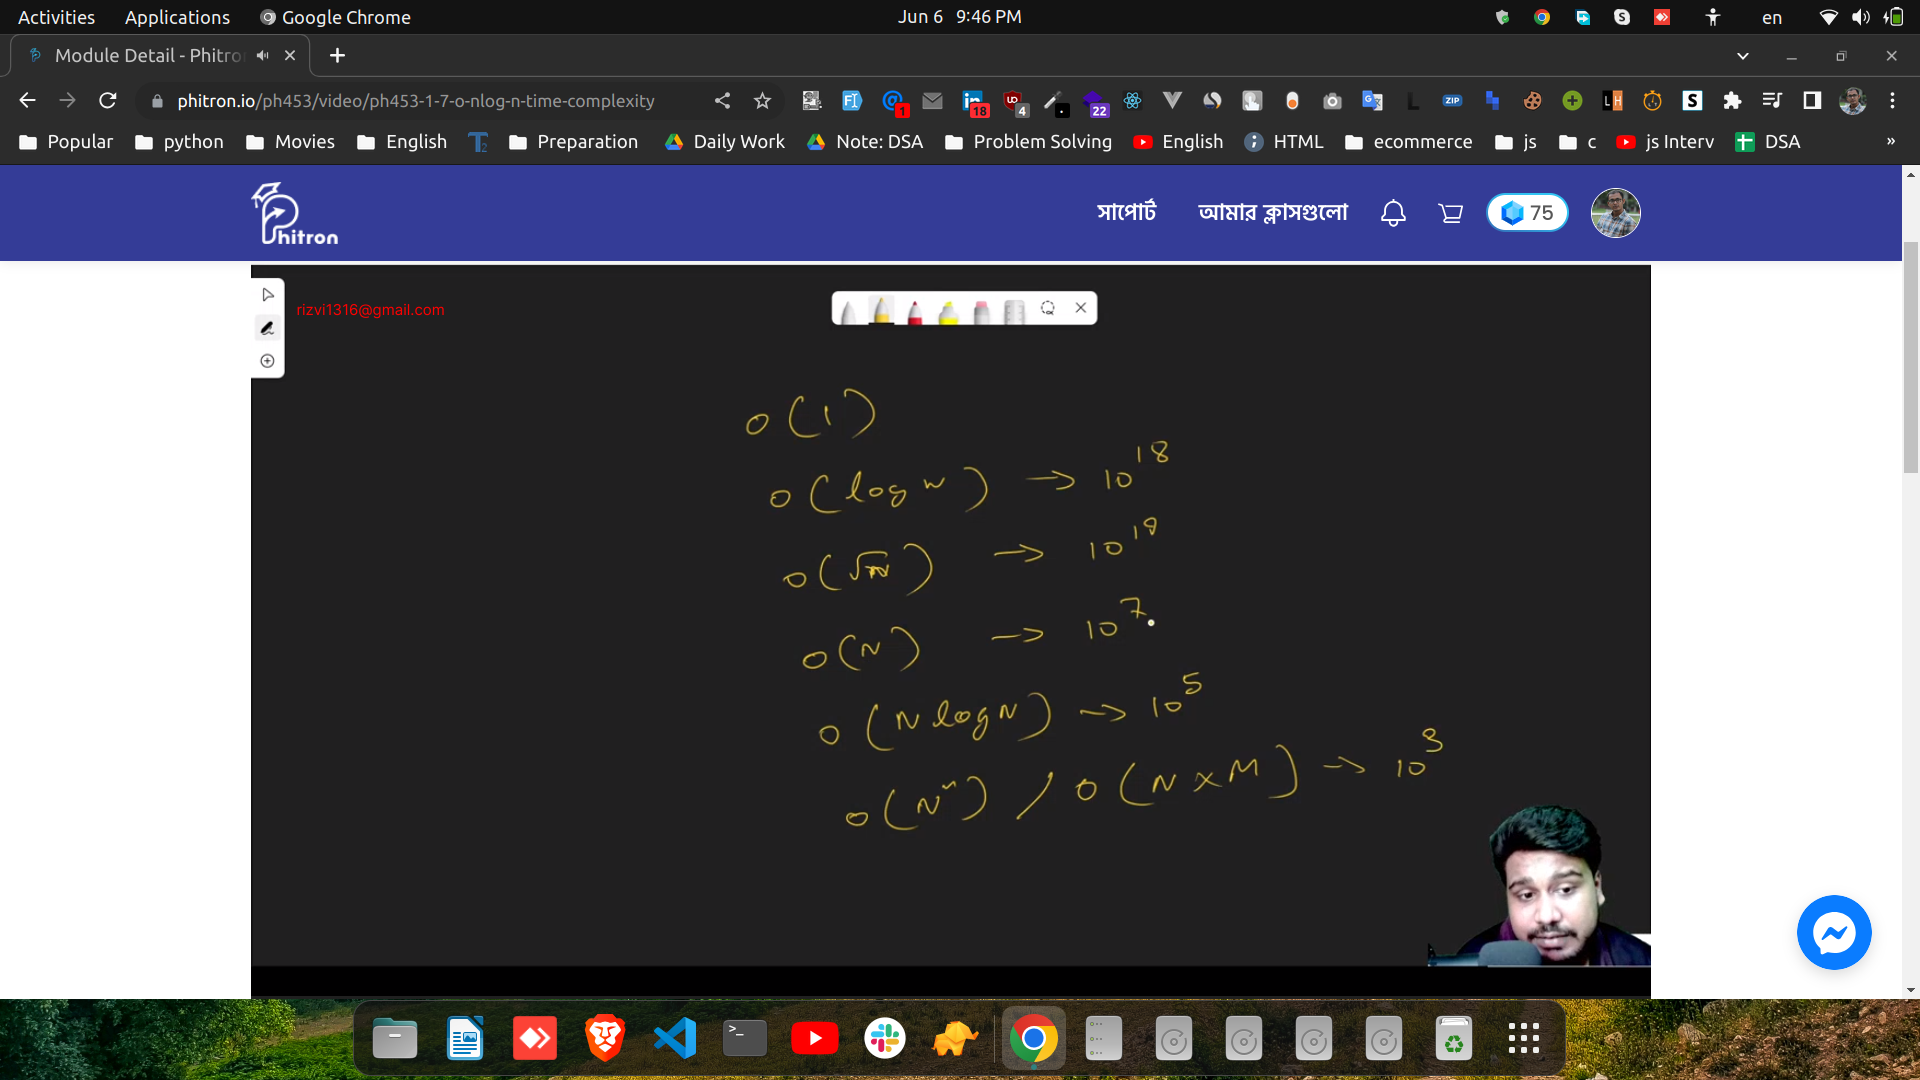 Activities Applications Google Chrome Jun 6 9:46 PM en
Module Detail - Phitro
phitron.io/ph453/video/ph453-1-7-o-nlog-n-time-complexity 1 18 4 22
Popular python Movies English Preparation Daily Work Note: DSA Problem Solving English HTML ecommerce js c js Interv DSA »
Phitron সাপোর্ট আমার ক্লাসগুলো 75
rizvi1316@gmail.com
O(1)
O(log N) → 10^18
O(√N) → 10^18
O(N) → 10^7
O(N log N) → 10^5
O(N²) / O(N×M) → 10^3